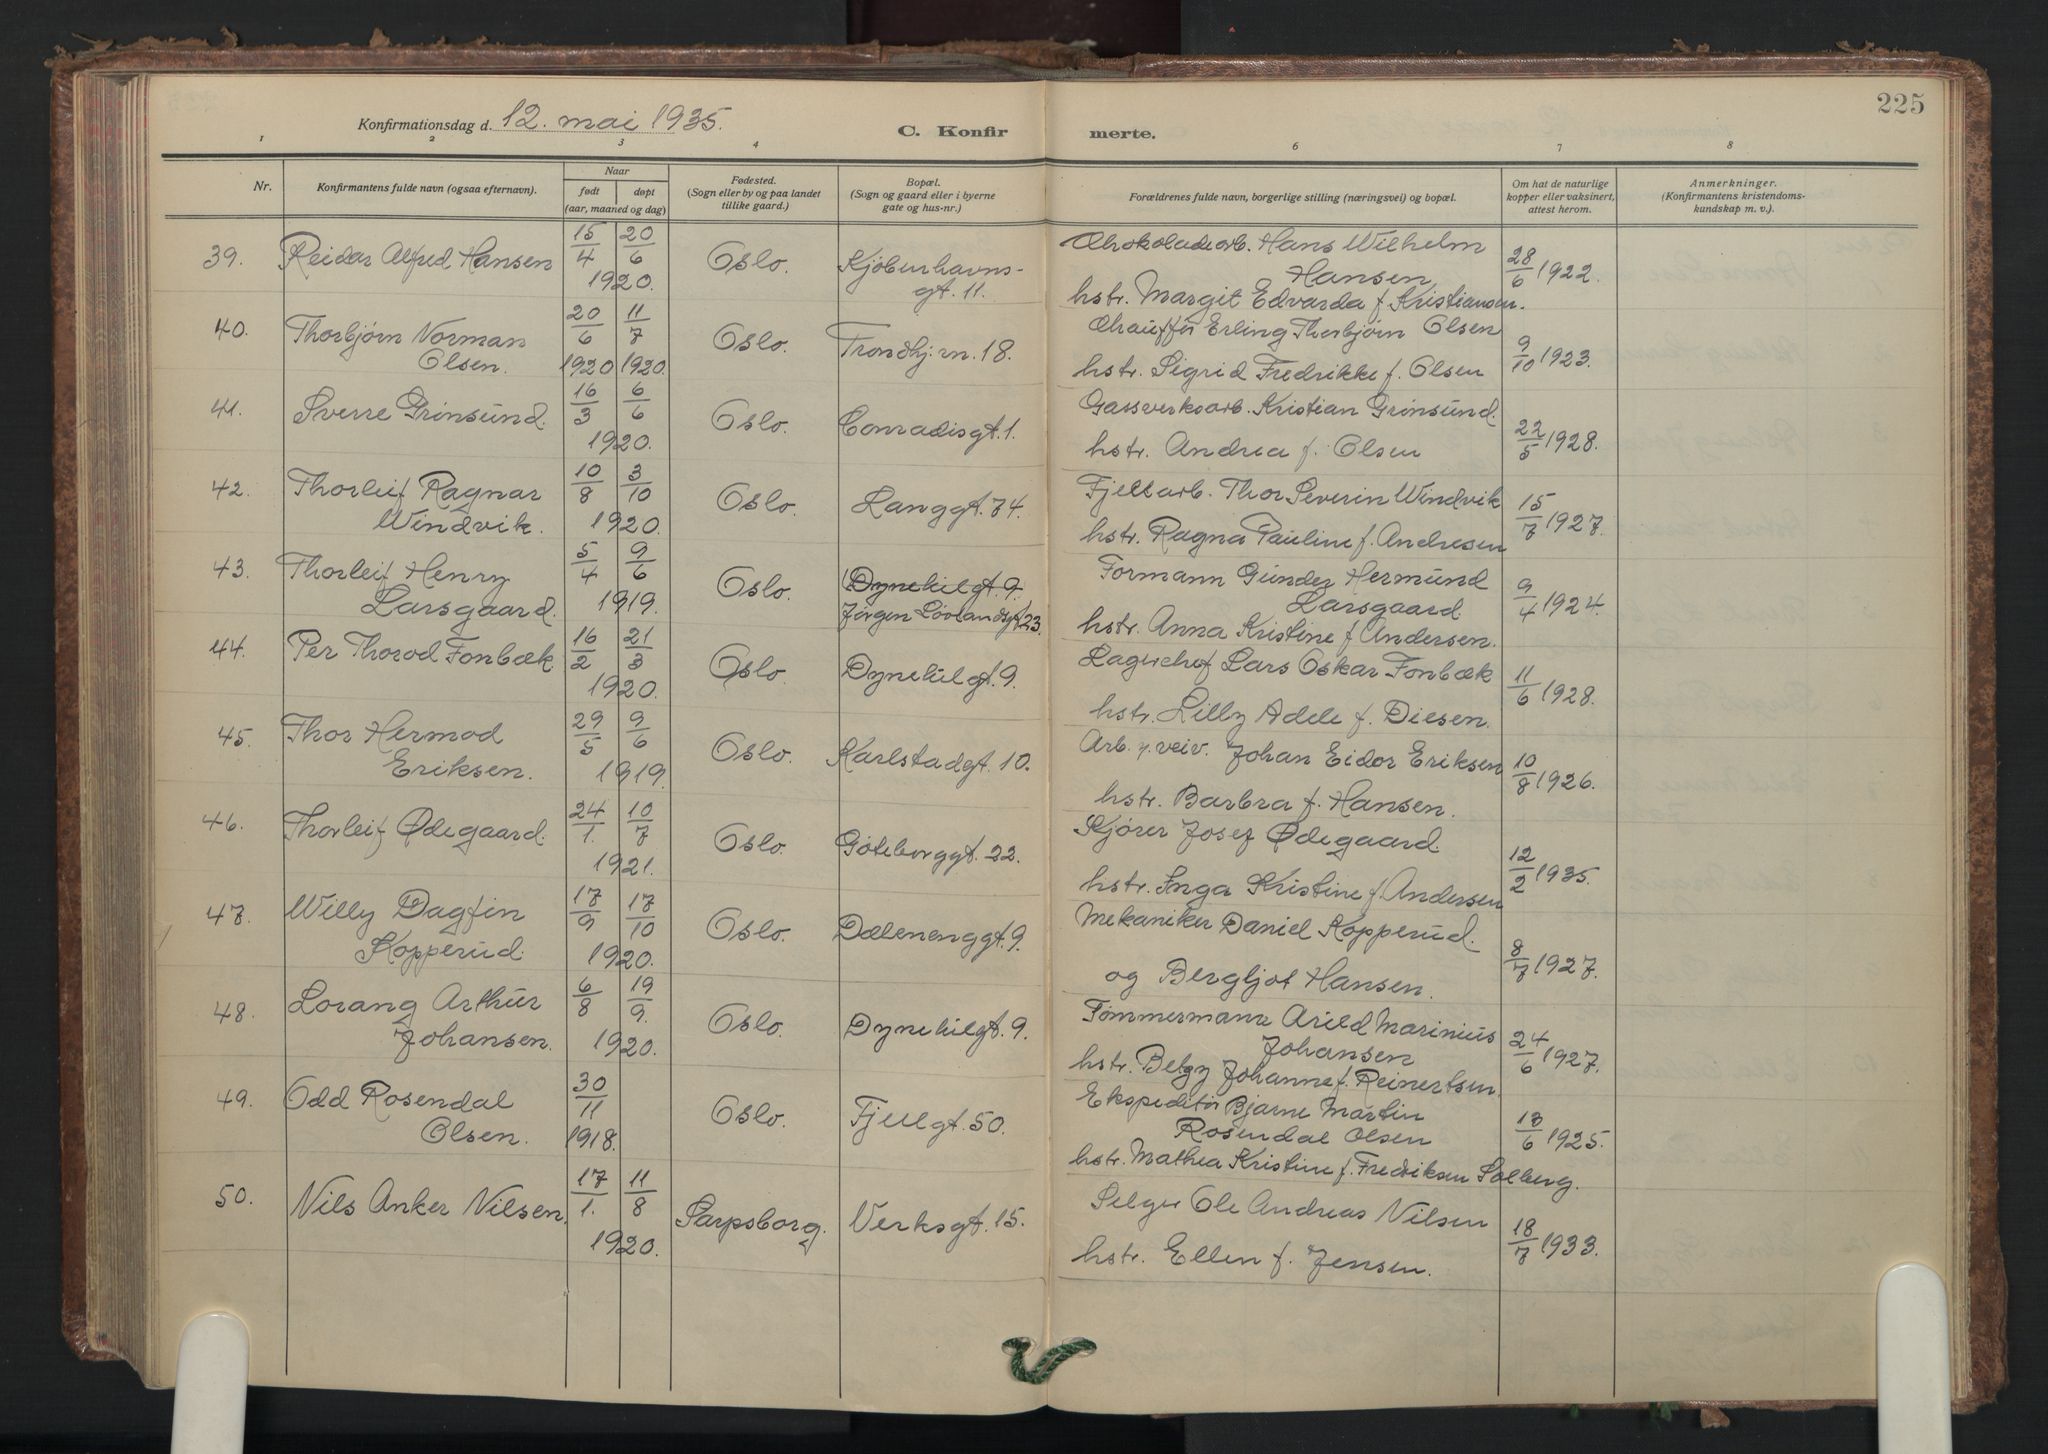 225
Konfirmationsdag d. 12. mai 1935.
C. Konfir merte.
1 2 3 4 6 7 8
Nr. Konfirmantens fulde navn (ogsaa efternavn). Naar født døpt (aar, maaned og dag) Fødested. (Sogn eller by og paa landet tillike gaard.) Bopæl. (Sogn og gaard eller i byerne gate og hus-nr.) Forældrenes fulde navn, borgerlige stilling (næringsvei) og bopæl. Om hat de naturlige kopper eller vaksinert, attest herom. Anmerkninger. (Konfirmantens kristendoms-kundskap m. v.).
39. Reidar Alfred Hansen 15/4 20/6 1920. Oslo. Kjöbenhavns-
gt. 11.
Chokoladearb. Hans Wilhelm
Hansen
hstr. Margit Edvarda f. Kristiansen. 28/6 1922.
40. Thorbjørn Norman
Olsen. 20/6 1920 11/7 1920. Oslo. Trondhj.vn. 18.
Chauffør Erling Thorbjørn Olsen
hstr. Sigrid Fredrikke f. Olsen 9/10 1923.
41. Sverre Grinsund. 16/3 6/6 1920. Oslo. Conradisgt. 1.
Gassverksarb. Kristian Grinsund.
hstr. Andrea f. Olsen 22/5 1928.
42. Thorleif Ragnar
Windvik. 10/8 3/10 1920. Oslo. Langgt. 74.
Fjellarb. Thor Severin Windvik
hstr. Ragna Pauline f. Andresen 15/7 1927.
43. Thorleif Henry
Larsgaard. 5/4 9/6 1919. Oslo. Dynekilgt. 9.
Jørgen Løvlandsgt. 23.
Formann Gunder Hermund
Larsgaard.
hstr. Anna Kristine f. Andersen. 9/4 1924.
44. Per Thorod Fonbæk. 16/2 21/3 1920. Oslo. Dynekilgt. 9.
Lagerchef Lars Oskar Fonbæk
hstr. Lilly Adele f. Diesen. 11/6 1928.
45. Thor Hermod
Eriksen. 29/5 9/6 1919. Oslo. Karlstadgt. 10.
Arb. v. veiv. Johan Eidor Eriksen
hstr. Barbra f. Hansen. 10/8 1926.
46. Thorleif Ødegaard. 24/1. 10/7 1921. Oslo. Göteborggt. 22.
Kjører Josef Ødegaard
hstr. Inga Kristine f. Andersen 12/2 1935.
47. Willy Dagfin
Kopperud. 17/9 17/10 1920. Oslo. Dælenenggt. 9.
Mekaniker Daniel Kopperud.
og Bergljot Hansen. 8/7 1927.
48. Lorang Arthur
Johansen. 6/8 19/9. 1920. Oslo. Dynekilgt. 9.
Tømmermann Arild Marinius
Johansen
hstr. Betzy Johanne f. Reinertsen. 24/6 1927.
49. Odd Rosendal
Olsen. 30/11 1918. Oslo. Fjellgt. 50.
Ekspeditør Bjarne Martin
Rosendal Olsen
hstr. Mathea Kristine f. Fredriksen Solberg. 13/6 1925.
50. Nils Anker Nilsen. 17/1. 11/8 1920. Sarpsborg. Verksgt. 15.
Selger Ole Andreas Nilsen
hstr. Ellen f. Jensen. 18/7 1933.